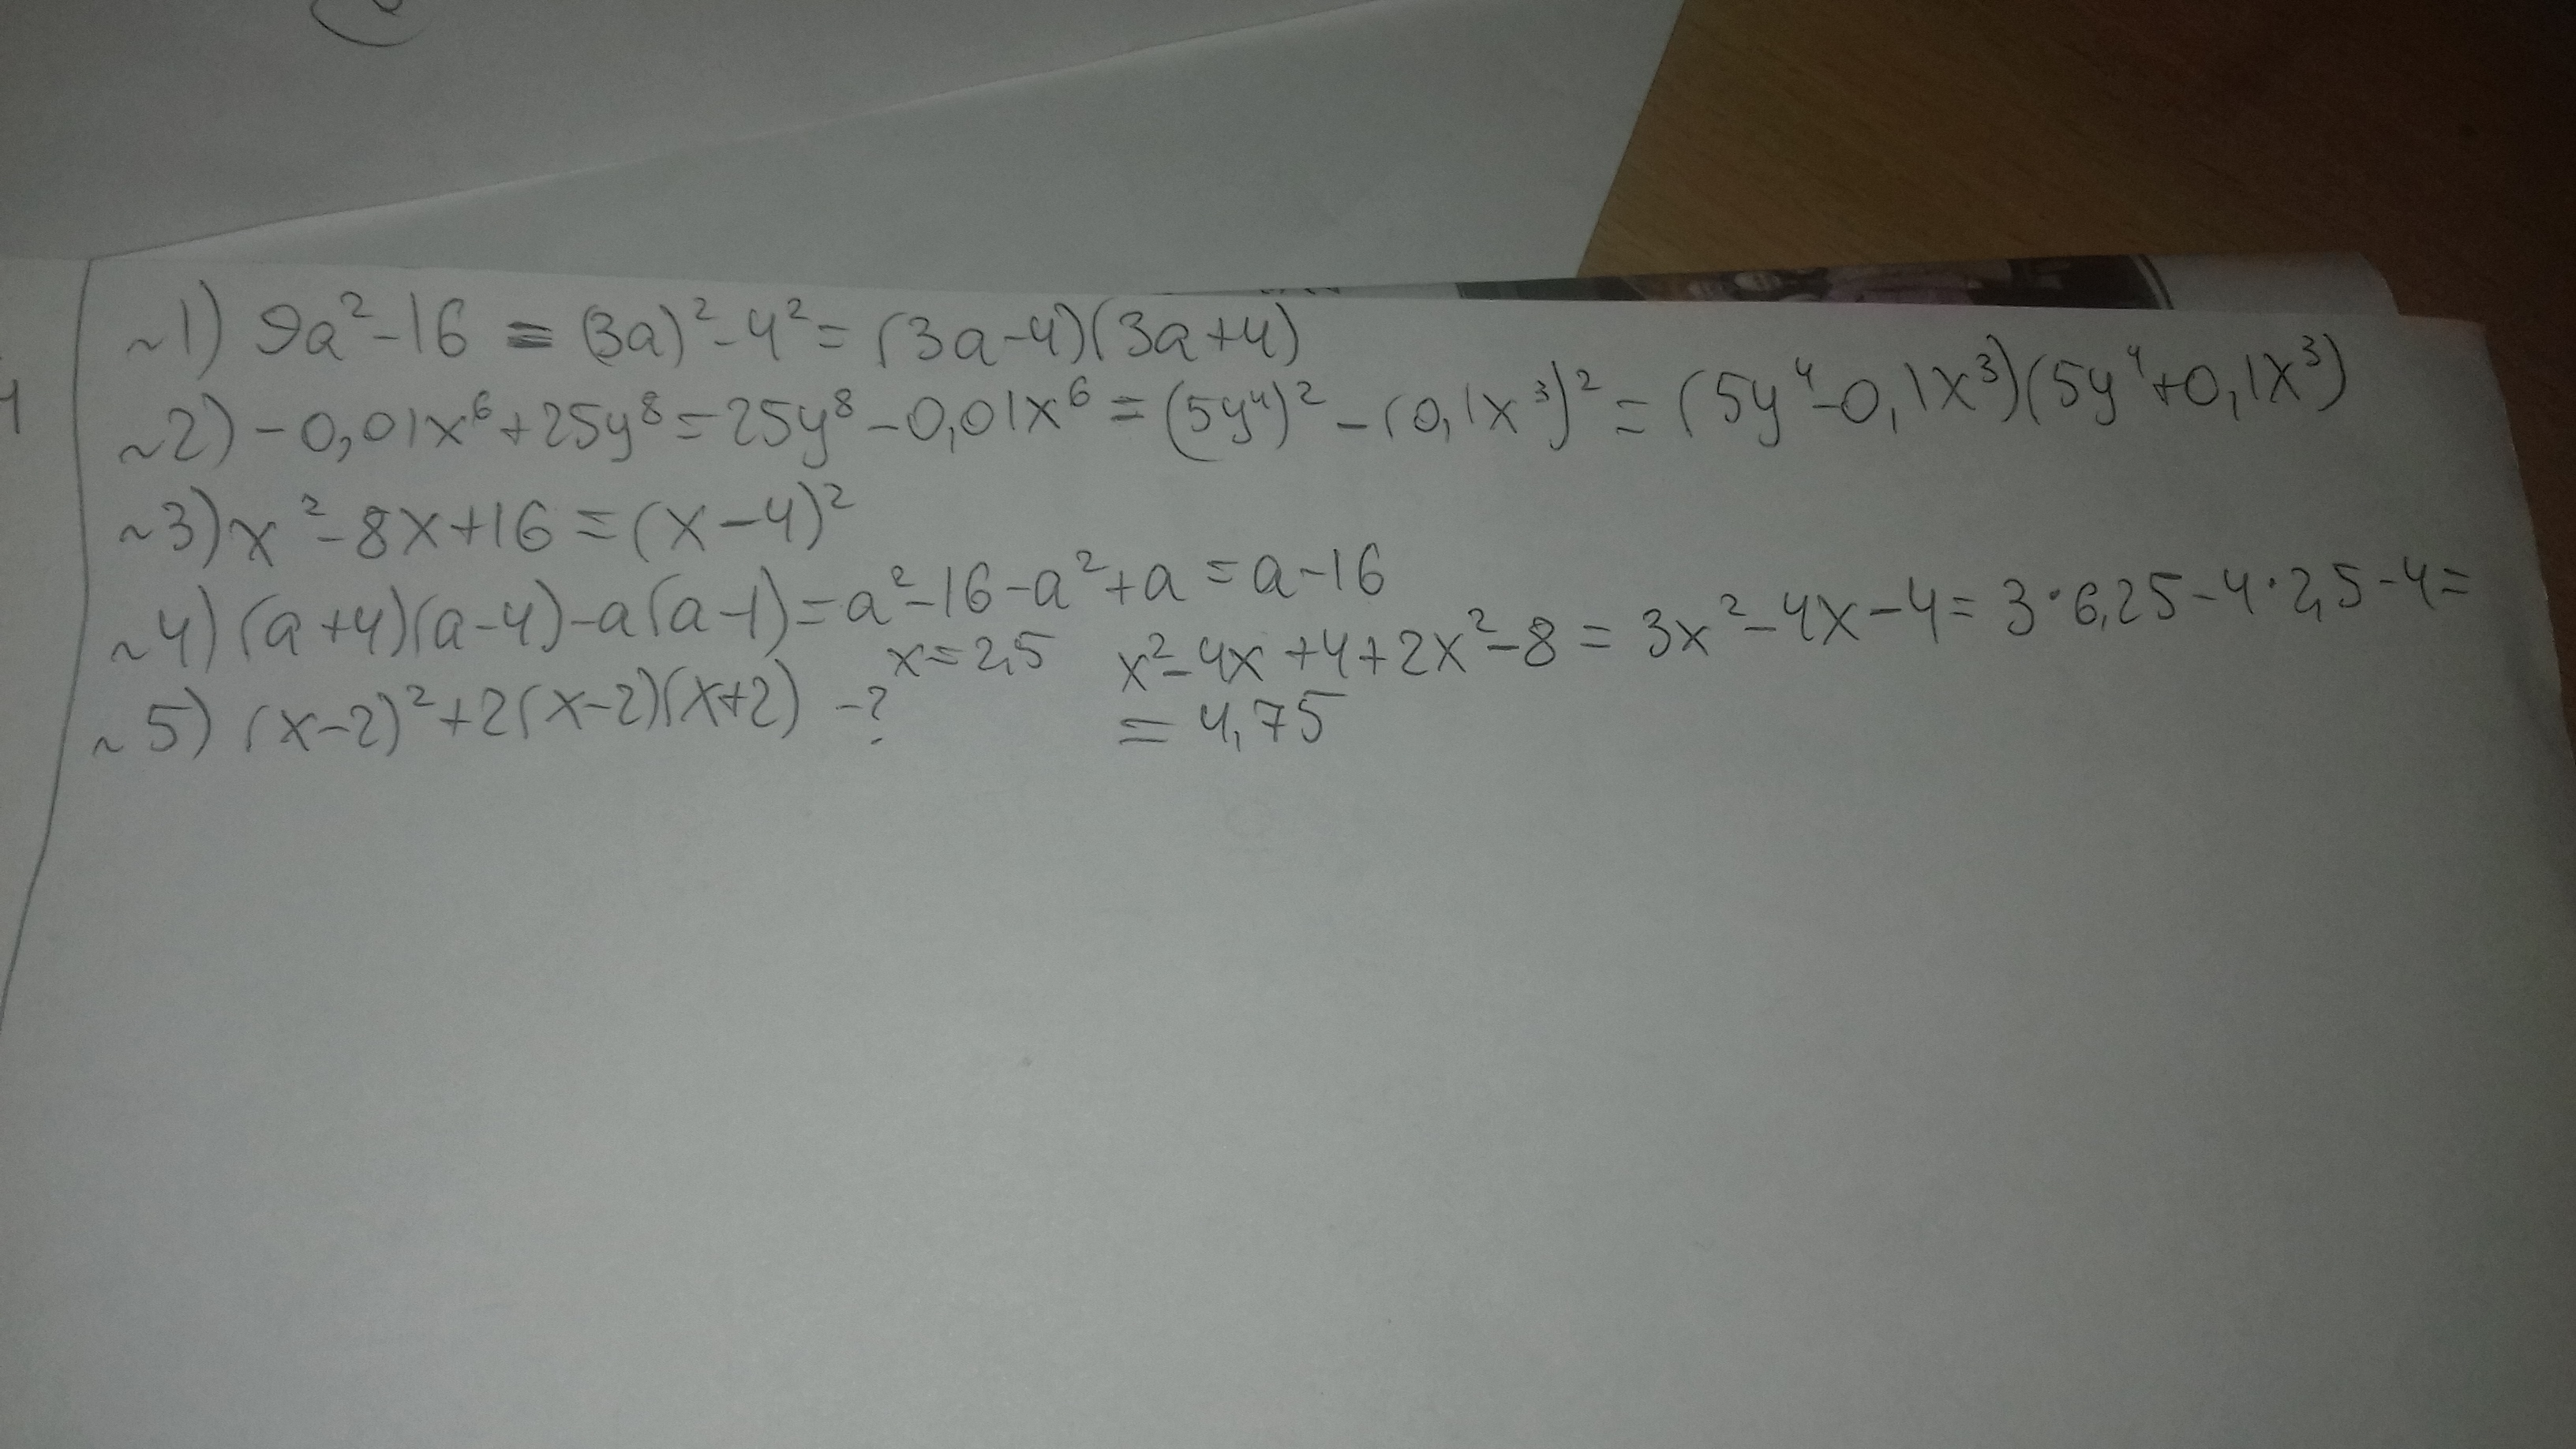 ~1) 9a²-16 = (3a)²-4²= (3a-4)(3a+4)
~2) -0,01x⁶+25y⁸=25y⁸-0,01x⁶=(5y⁴)²-(0,1x³)²=(5y⁴-0,1x³)(5y⁴+0,1x³)
~3) x²-8x+16=(x-4)²
~4) (a+4)(a-4)-a(a-1)=a²-16-a²+a=a-16
~5) (x-2)²+2(x-2)(x+2) -? x=2,5 x²-4x+4+2x²-8=3x²-4x-4=3·6,25-4·2,5-4=
=4,75